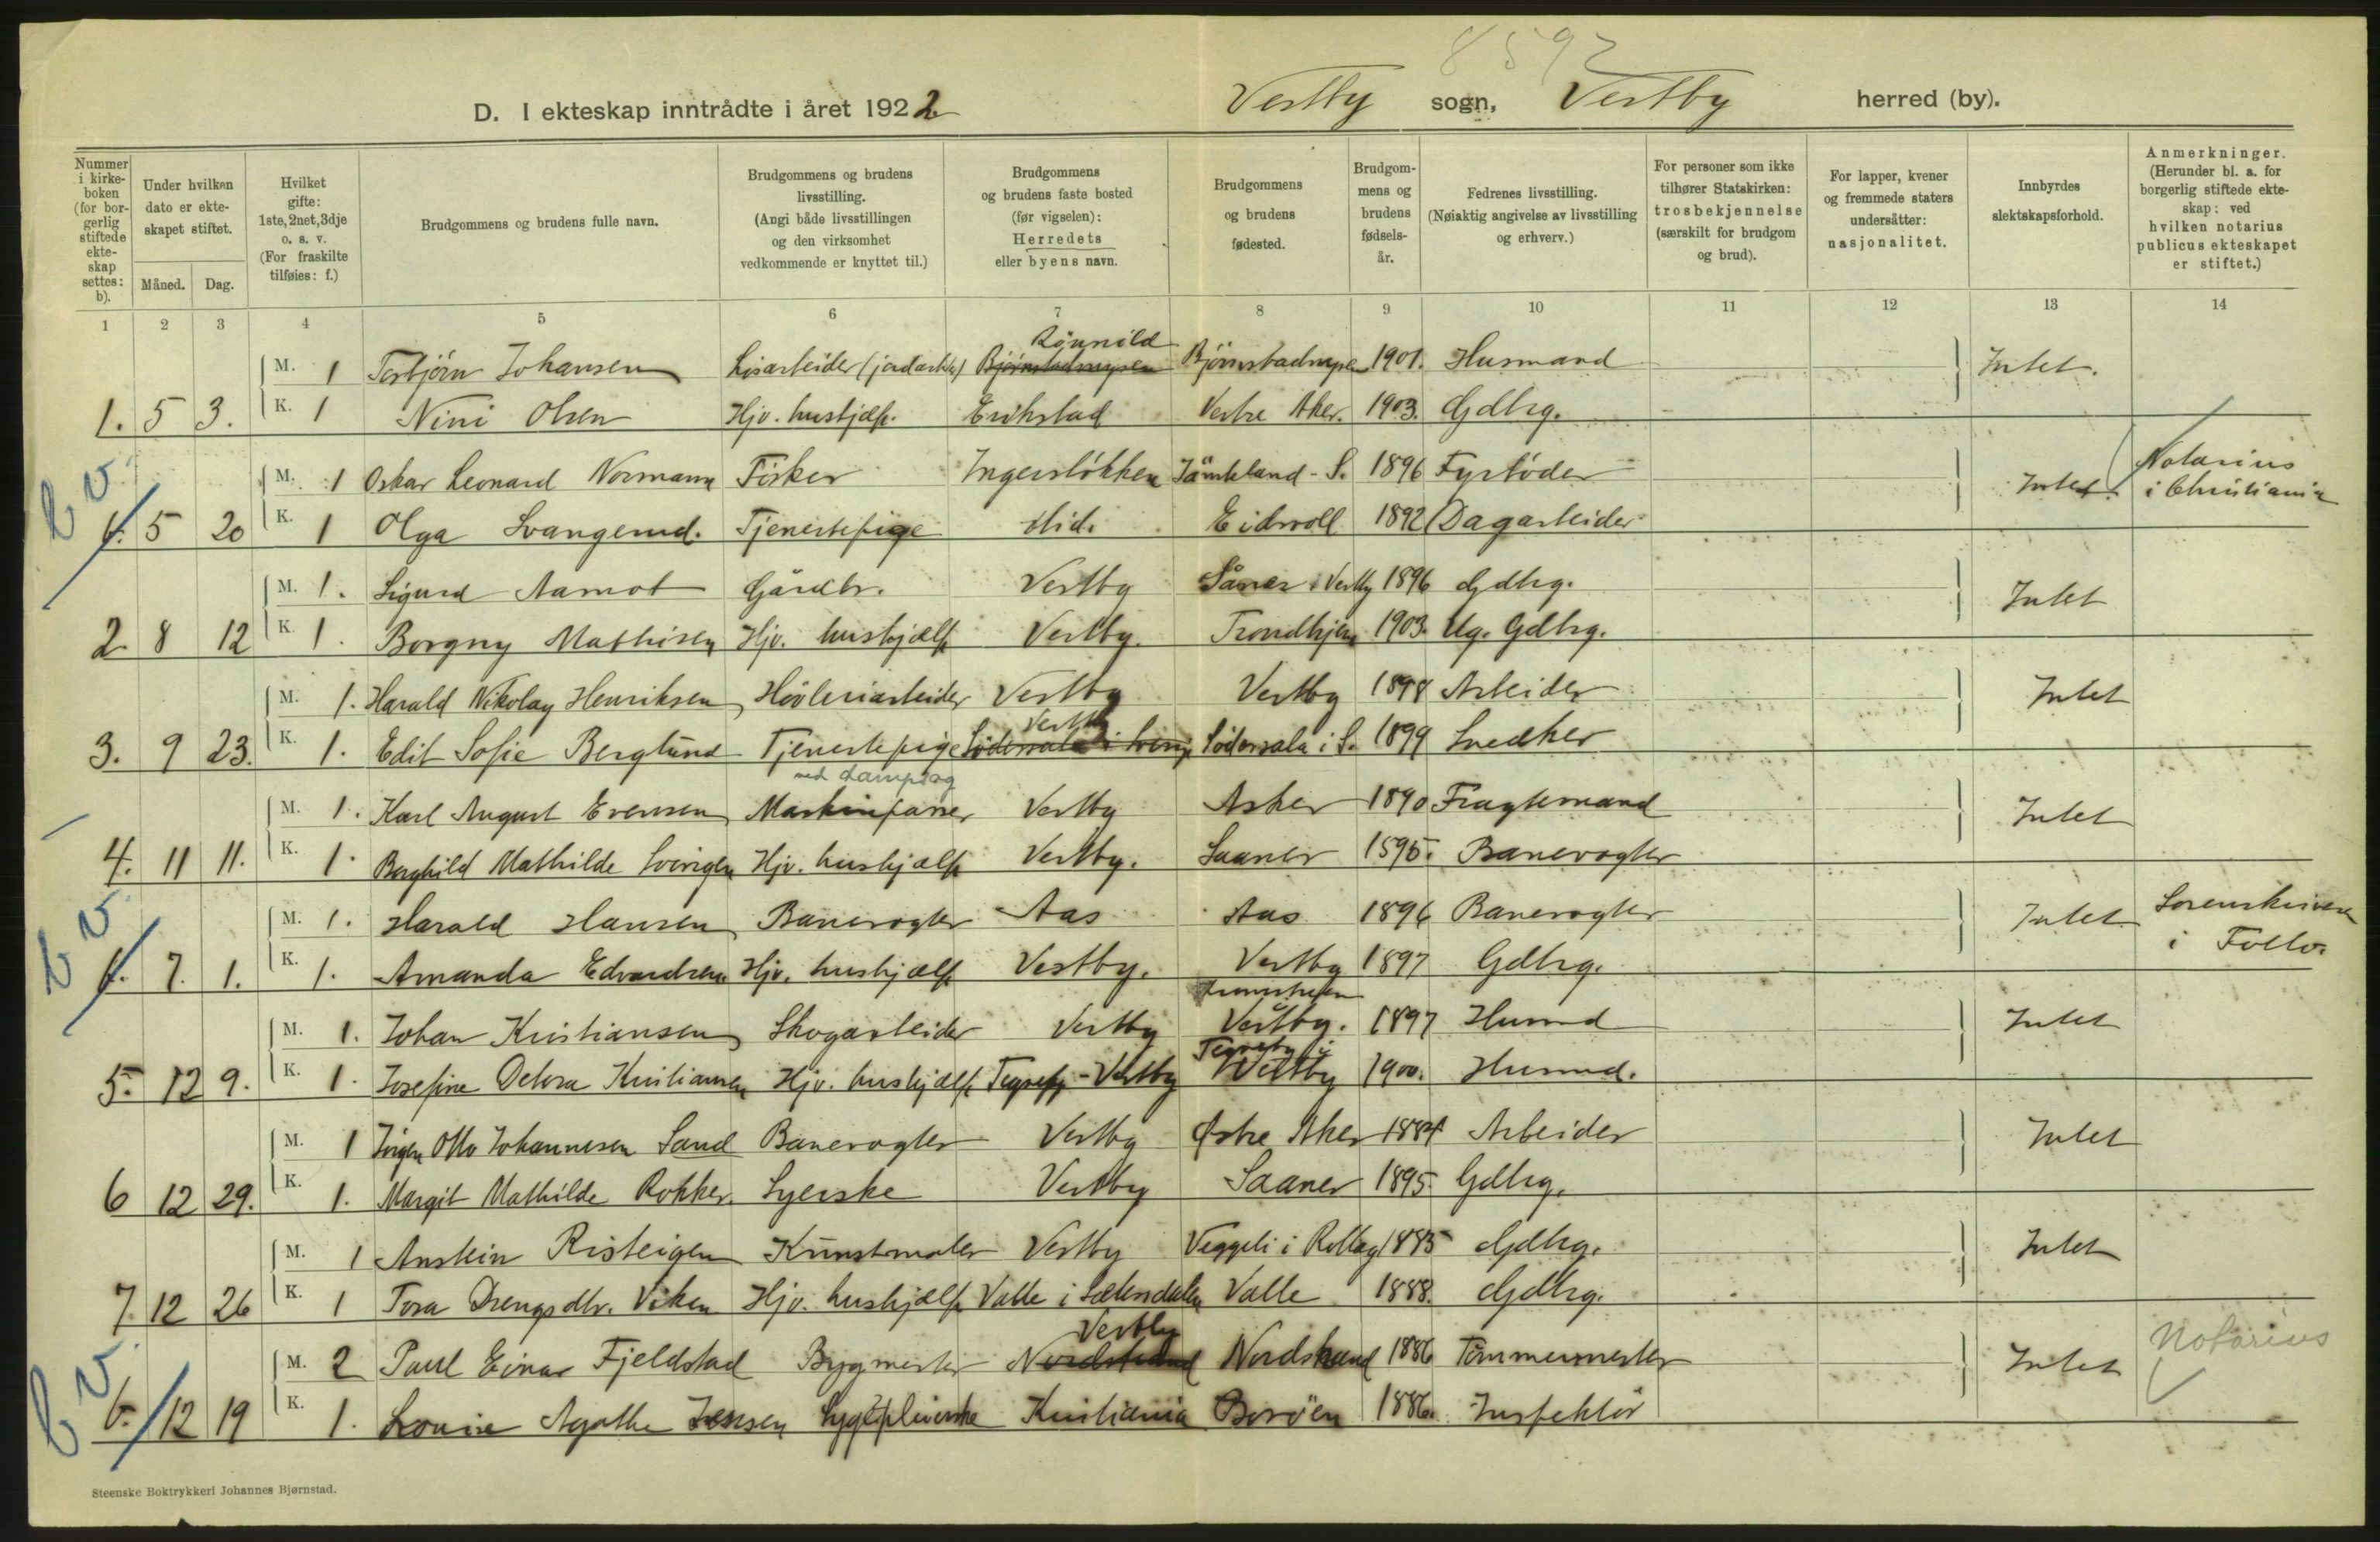 8592
D. I ekteskap inntrådte i året 1922 Vestby sogn, Vestby herred (by).
Nummer i kirkeboken (for borgerlig stiftede ekteskap settes: b).
Under hvilken dato er ekteskapet stiftet.
Måned. Dag.
Hvilket gifte: 1ste, 2net, 3dje o. s. v. (For fraskilte tilføies: f.)
Brudgommens og brudens fulle navn.
Brudgommens og brudens livsstilling. (Angi både livsstillingen og den virksomhet vedkommende er knyttet til.)
Brudgommens og brudens faste bosted (før vigselen): Herredets eller byens navn.
Brudgommens og brudens fødested.
Brudgommens og brudens fødselsår.
Fedrenes livsstilling. (Nøiaktig angivelse av livsstilling og erhverv.)
For personer som ikke tilhører Statskirken: trosbekjennelse (særskilt for brudgom og brud).
For lapper, kvener og fremmede staters undersåtter: nasjonalitet.
Innbyrdes slektskapsforhold.
Anmerkninger. (Herunder bl. a. for borgerlig stiftede ekteskap: ved hvilken notarius publicus ekteskapet er stiftet.)
1 2 3 4 5 6 7 8 9 10 11 12 13 14
Rönnild
M. 1 Torbjörn Johansen Bjørnstadmyren Bjørnstadmyren 1901. Husmand Intet.
1. 5 3. K. 1 Nini Olsen Hjv. hushjælp. Erikstad Vestre Aker. 1903. Gdbrg.
b v.
M. 1 Oskar Leonard Normann Fisker Ingersløkken Jämtland - S. 1896 Fyrbøder Intet. Notarius i Christiania
b. 5 20 K. 1 Olga Svangerud. Tjenestepige Hid. Eidsvoll 1892 Dagarbeider
M. 1. Sigurd Aamot Gårdbr. Vestby Såner i Vestby 1896 Gdbrg. Intet
2 8 12 K. 1. Borgny Mathisen Hjv. hushjælp Vestby. Trondhjem 1903. Ug. Gdbrg.
M. 1. Harald Nikolay Henriksen Høvleriarbeider Vestby Vestby 1898 Arbeider Intet
Vestby
3. 9 23. K. 1. Edit Sofie Berglund Tjenestepige Södersala i Sverige Södersala i S. 1899 Snedker
ved dampsag
M. 1. Karl August Evensen Maskinpasser Vestby Asker 1890 Fragtemand Intet
4. 11 11. K. 1. Borghild Mathilde Hjv. hushjælp Vestby. Saaner 1895. Banevogter
b v.
M. 1. Harald Hansen Banevogter Aas Aas 1896 Banevogter Intet Sorenskriveren i Follo.
b. 7. 1. K. 1. Amanda Edvardsen Hjv. hushjælp Vestby. Vestby 1897 Gdbrg.
M. 1. Johan Kristiansen Skogarbeider Vestby Vestby. 1897 Husmd Intet
5. 12 9. K. 1. Josefine Debora Kristiansen Hjv. hushjælp Tegneby - Vestby Tegneby i Vestby 1900. Husmd.
M. 1 Jörgen Otto Johannesen Sand Banevogter Vestby Østre Aker 1884 Arbeider Intet
6 12 29. K. 1. Margit Mathilde Rokker. Syerske Vestby Saaner 1895. Gdbrg.
M. 1 Anstein Risteigen Kunstmaler Vestby Veggeli i Rollag 1885 Gdbrg. Intet
7. 12 26 K. 1 Tora Drengsdtr. Viken Hjv. hushjælp Valle i Sætersdalen Valle 1888. Gdbrg.
Vestby
b v.
M. 2 Paul Einar Fjeldstad Bygmester Nordstrand Nordstrand 1886 Tømmermester Intet Notarius
b. 12 19 K. 1. Louise Agathe Jensen Sygepleierske Kristiania Borøen 1886. Inspektør
Steenske Boktrykkeri Johannes Bjørnstad.